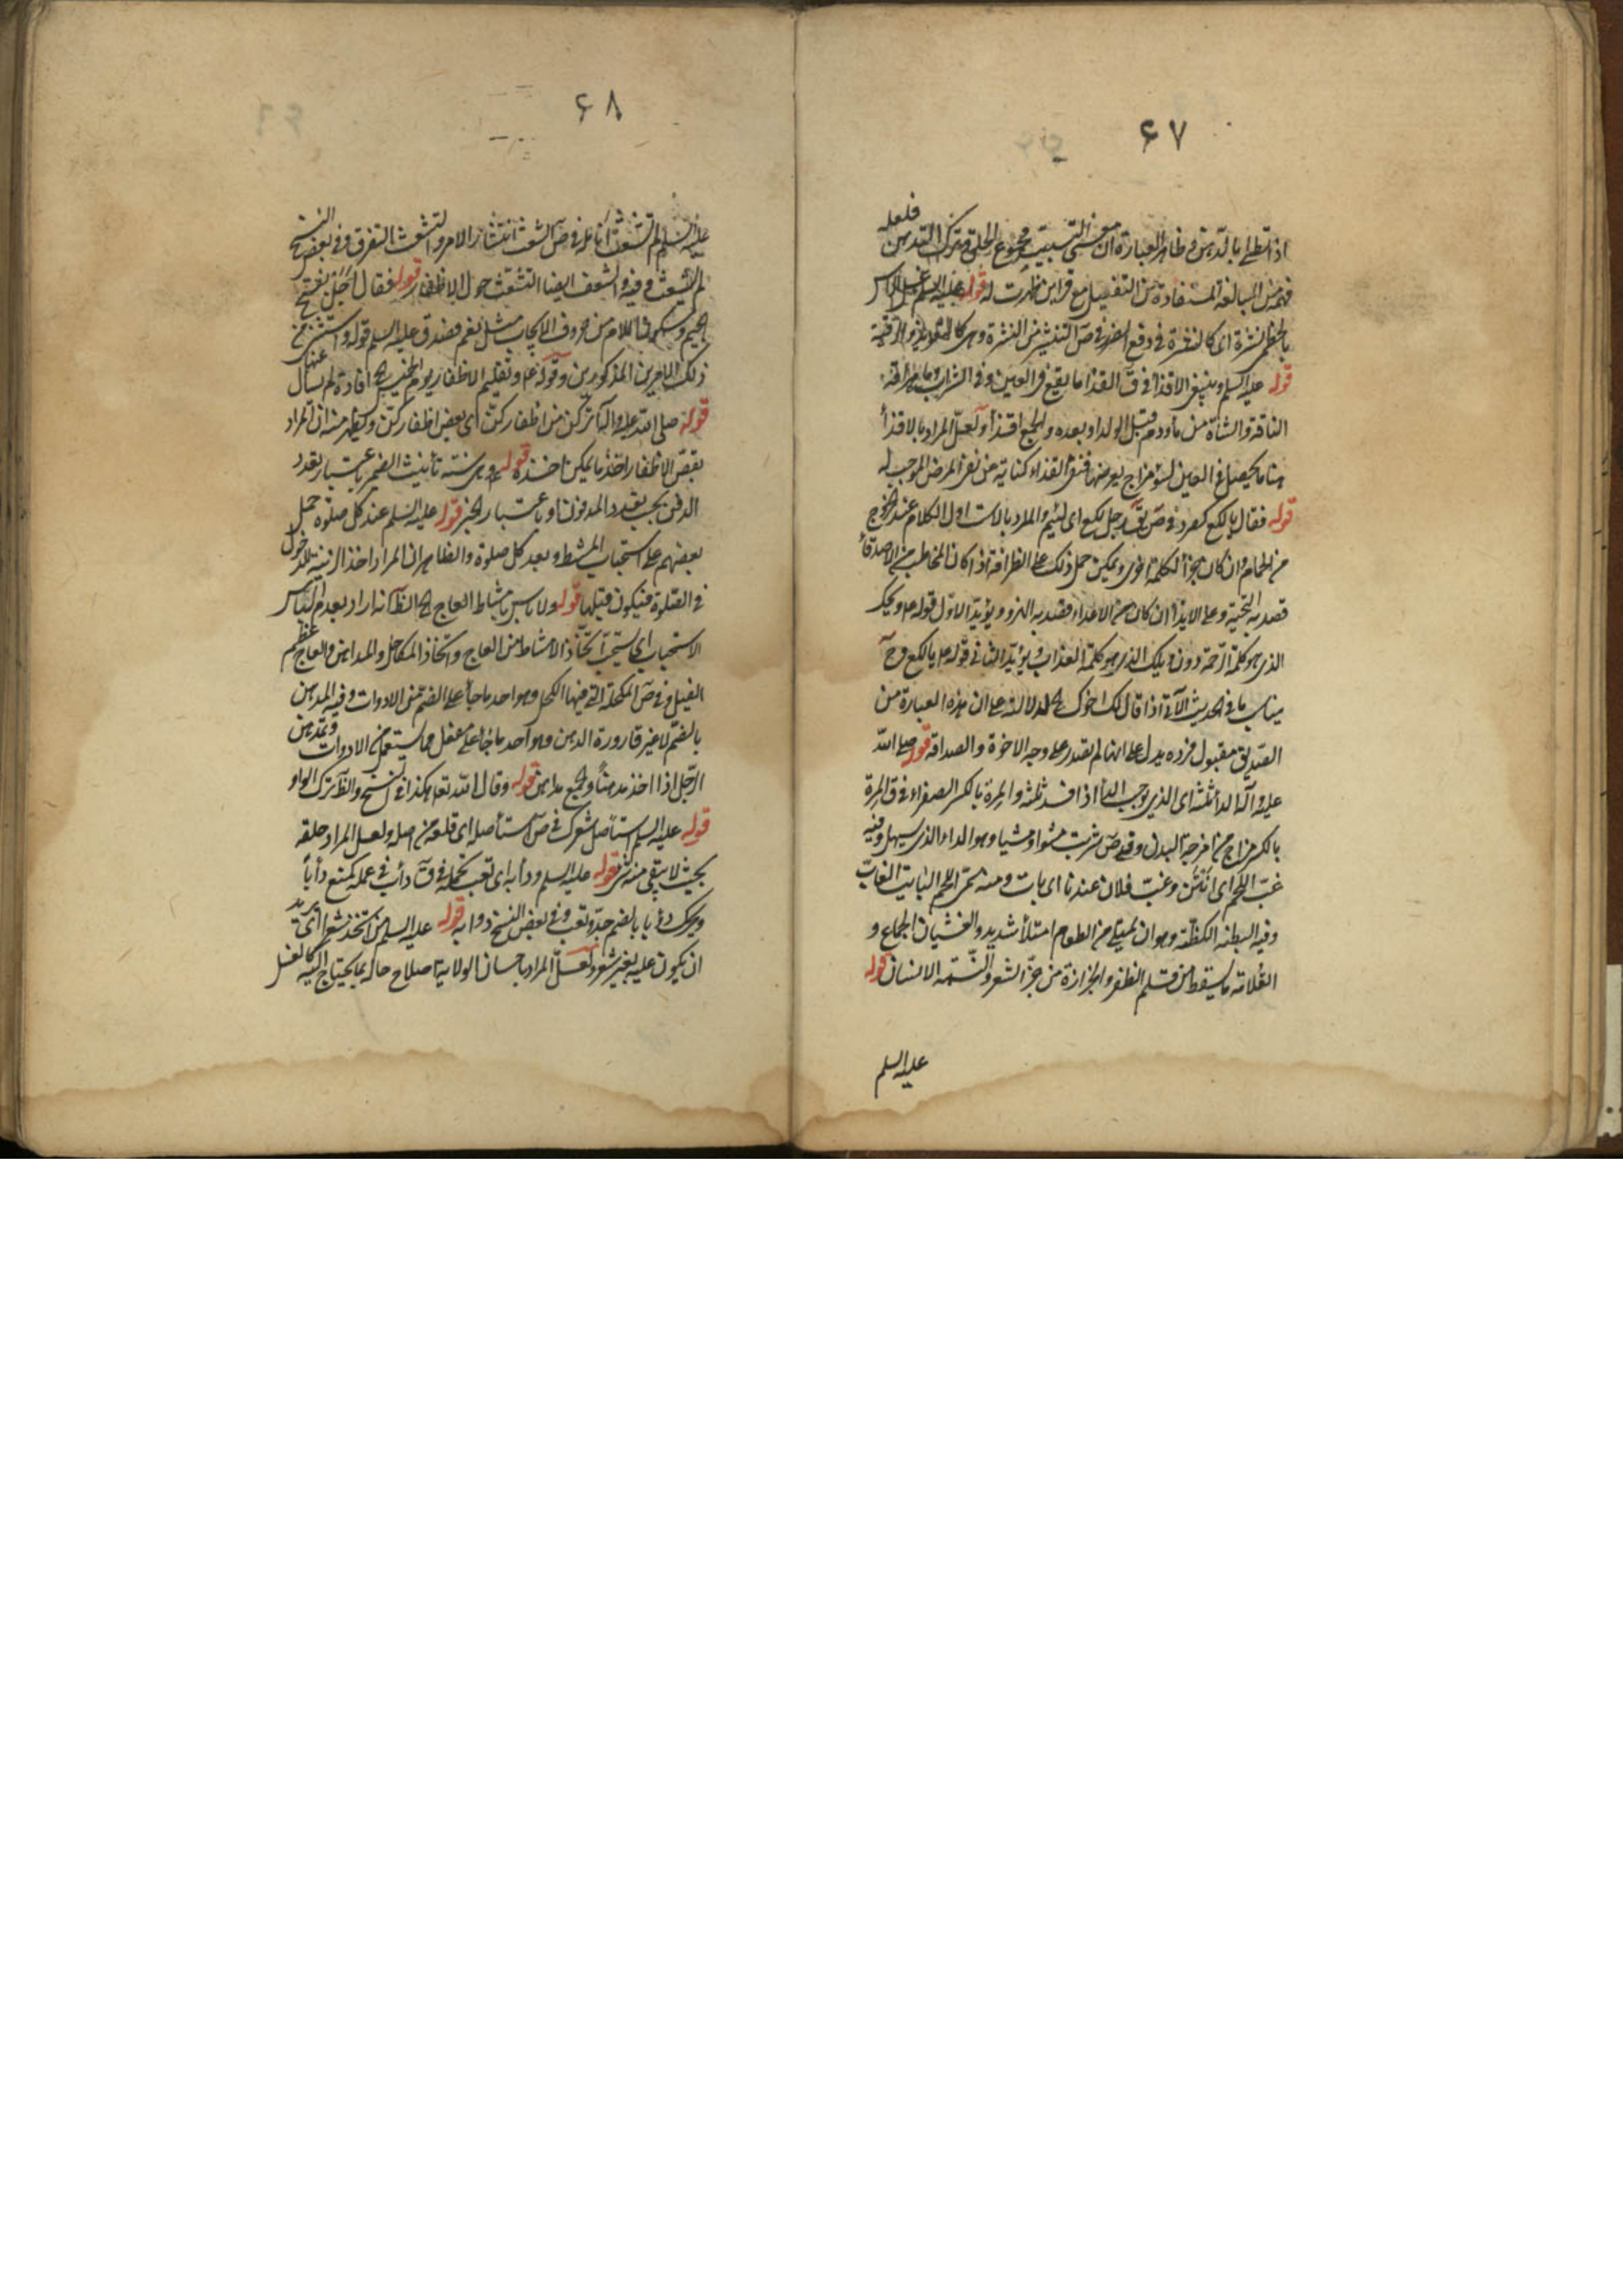 ٦٧
اذا تطلى بالدهن وظاهر العبارة ان معنى التسبيت مجموع الحلق وترك التدهين فلعله
فهمه من المبالغة المستفادة من التفعيل مع قراين ظهرت له قوله عليه السلم غسل الراس
بالخطمى نشرة اى كالنشرة فى دفع الضرر فى ص التنشير من النشرة وهى كالتعويذ والرقية
قوله عليه السلم وينفى الاقذاء فى ق القذا ما يقع فى العين وفى الشراب وما هراقته
الناقة والشاة من ماء ودم قبل الولد او بعده والجمع اقذاء ولعل المراد بالاقذاء
هنا ما يحصل فى العين لسوء مزاج يعرضها فنفى القذاء كناية عن نفى المرض الموجب له
قوله فقال يا لكع كصرد فى ص يق رجل لكع اى لئيم والمراد بالاست اول الكلام عند الخروج
من الحمام وان كان جزء الكلمة اخرى ويمكن حمل ذلك على الظرافة اذا كان المخاطب من الاصدقاء
قصد به التحية وعلى الايذاء ان كان من الاعداء فقصد به الهزو ويؤيد الاول قوله ع ويحك
الذى هو كلمة الرحمة دون ويلك الذى هو كلمة العذاب ويؤيد الثانى قوله ع يا لكع وح
يناسب ما فى الحديث الآتى اذا قال لك اخوك الخ لدلالته على ان هذه العبارة من
الصديق مقبول فرده يدل على انها لم تصدر على وجه الاخوة والصداقة قوله صلى الله
عليه وآله الداء ثلثة اى الذى يوجب الداء اذا فسد ثلثة والمرة بالكسر الصفراء فى ق المرة
بالكسر مزاج من امزجة البدن وفى ص شربت مشوا ومشيا وهو الداء الذى يسهل وفيه
غبّ اللحم اى انتن وغبّ فلان عندنا اى بات ومنه سمّى اللحم البايت الغابّ
وفيه البطنه الكظّة وهو ان يمتلى من الطعام امتلاء شديدا والغشيان الجماع و
القلامة ما يسقط من قلم الظفر والجزازة من جزّ الشعر والنّسمة الانسان قوله
عليه السلم
٦٨
عليه السلم لم تشعث انامله فى ص الشعث انتشار الامر والتشعث التفرق وفى بعض النسخ
لم تشعث وفيه والشعف ايضا التشعث حول الاظفار قوله فقال اجل بفتح
الجيم وسكون اللام من حروف الايجاب مثل نعم فصدق عليه السلم قوله واستثنى من
ذلك الامرين المذكورين وقوله ع وتقليم الاظفار يوم الخميس الخ افادة لم يسأل عنها
قوله صلى الله عليه وآله اتركن من اظفاركن اى بعض اظفاركن ويظهر منه ان المراد
بقصّ الاظفار اخذ ما يمكن اخذه قوله وهى سنة تأنيث الضمير باعتبار تعدد
الدفن بحسب تعدد المدفونات او باعتبار الخبر قوله عليه السلم عند كل صلوة حمل
بعضهم على استحباب المشط وبعد كل صلوة والظاهر ان المراد اخذ الزينة للدخول
فى الصلوة فيكون قبلها قوله ولا بأس بامشاط العاج الخ الظ انه اراد بعدم الباس
الاستحباب اى يستحب اتخاذ الامشاط من العاج واتخاذ المكاحل والمداهن والعاج عظم
الفيل وفى ص المكحلة التى فيها الكحل وهو احد ما جاء على الضم من الادوات وفيه المدهن
بالضم لا غير قارورة الدهن وهو احد ما جاء على مفعل مما يستعمل من الادوات وتمدهن
الرجل اذا اخذ مدهنًا والجمع مداهن قوله وقال الله تعالى هكذا فى النسخ والظ ترك الواو
قوله عليه السلم استأصل شعرك فى ص استأصله اى قلعه من اصله ولعل المراد حلقه
بحيث لا يبقى منه شىء قوله عليه السلم ودأبه اى تعب تحمله فى ق دأب فى عمله كمنع دأبًا
ويحرك دؤبا بالضم جدّ وتعب وفى بعض النسخ دوابه قوله عليه السلم من اتخذ شعرا اى يريد
ان يكون عليه بغير شعر ولعلّ المراد باحسان الولاية اصلاح حاله بما يحتاج اليه كالغسل